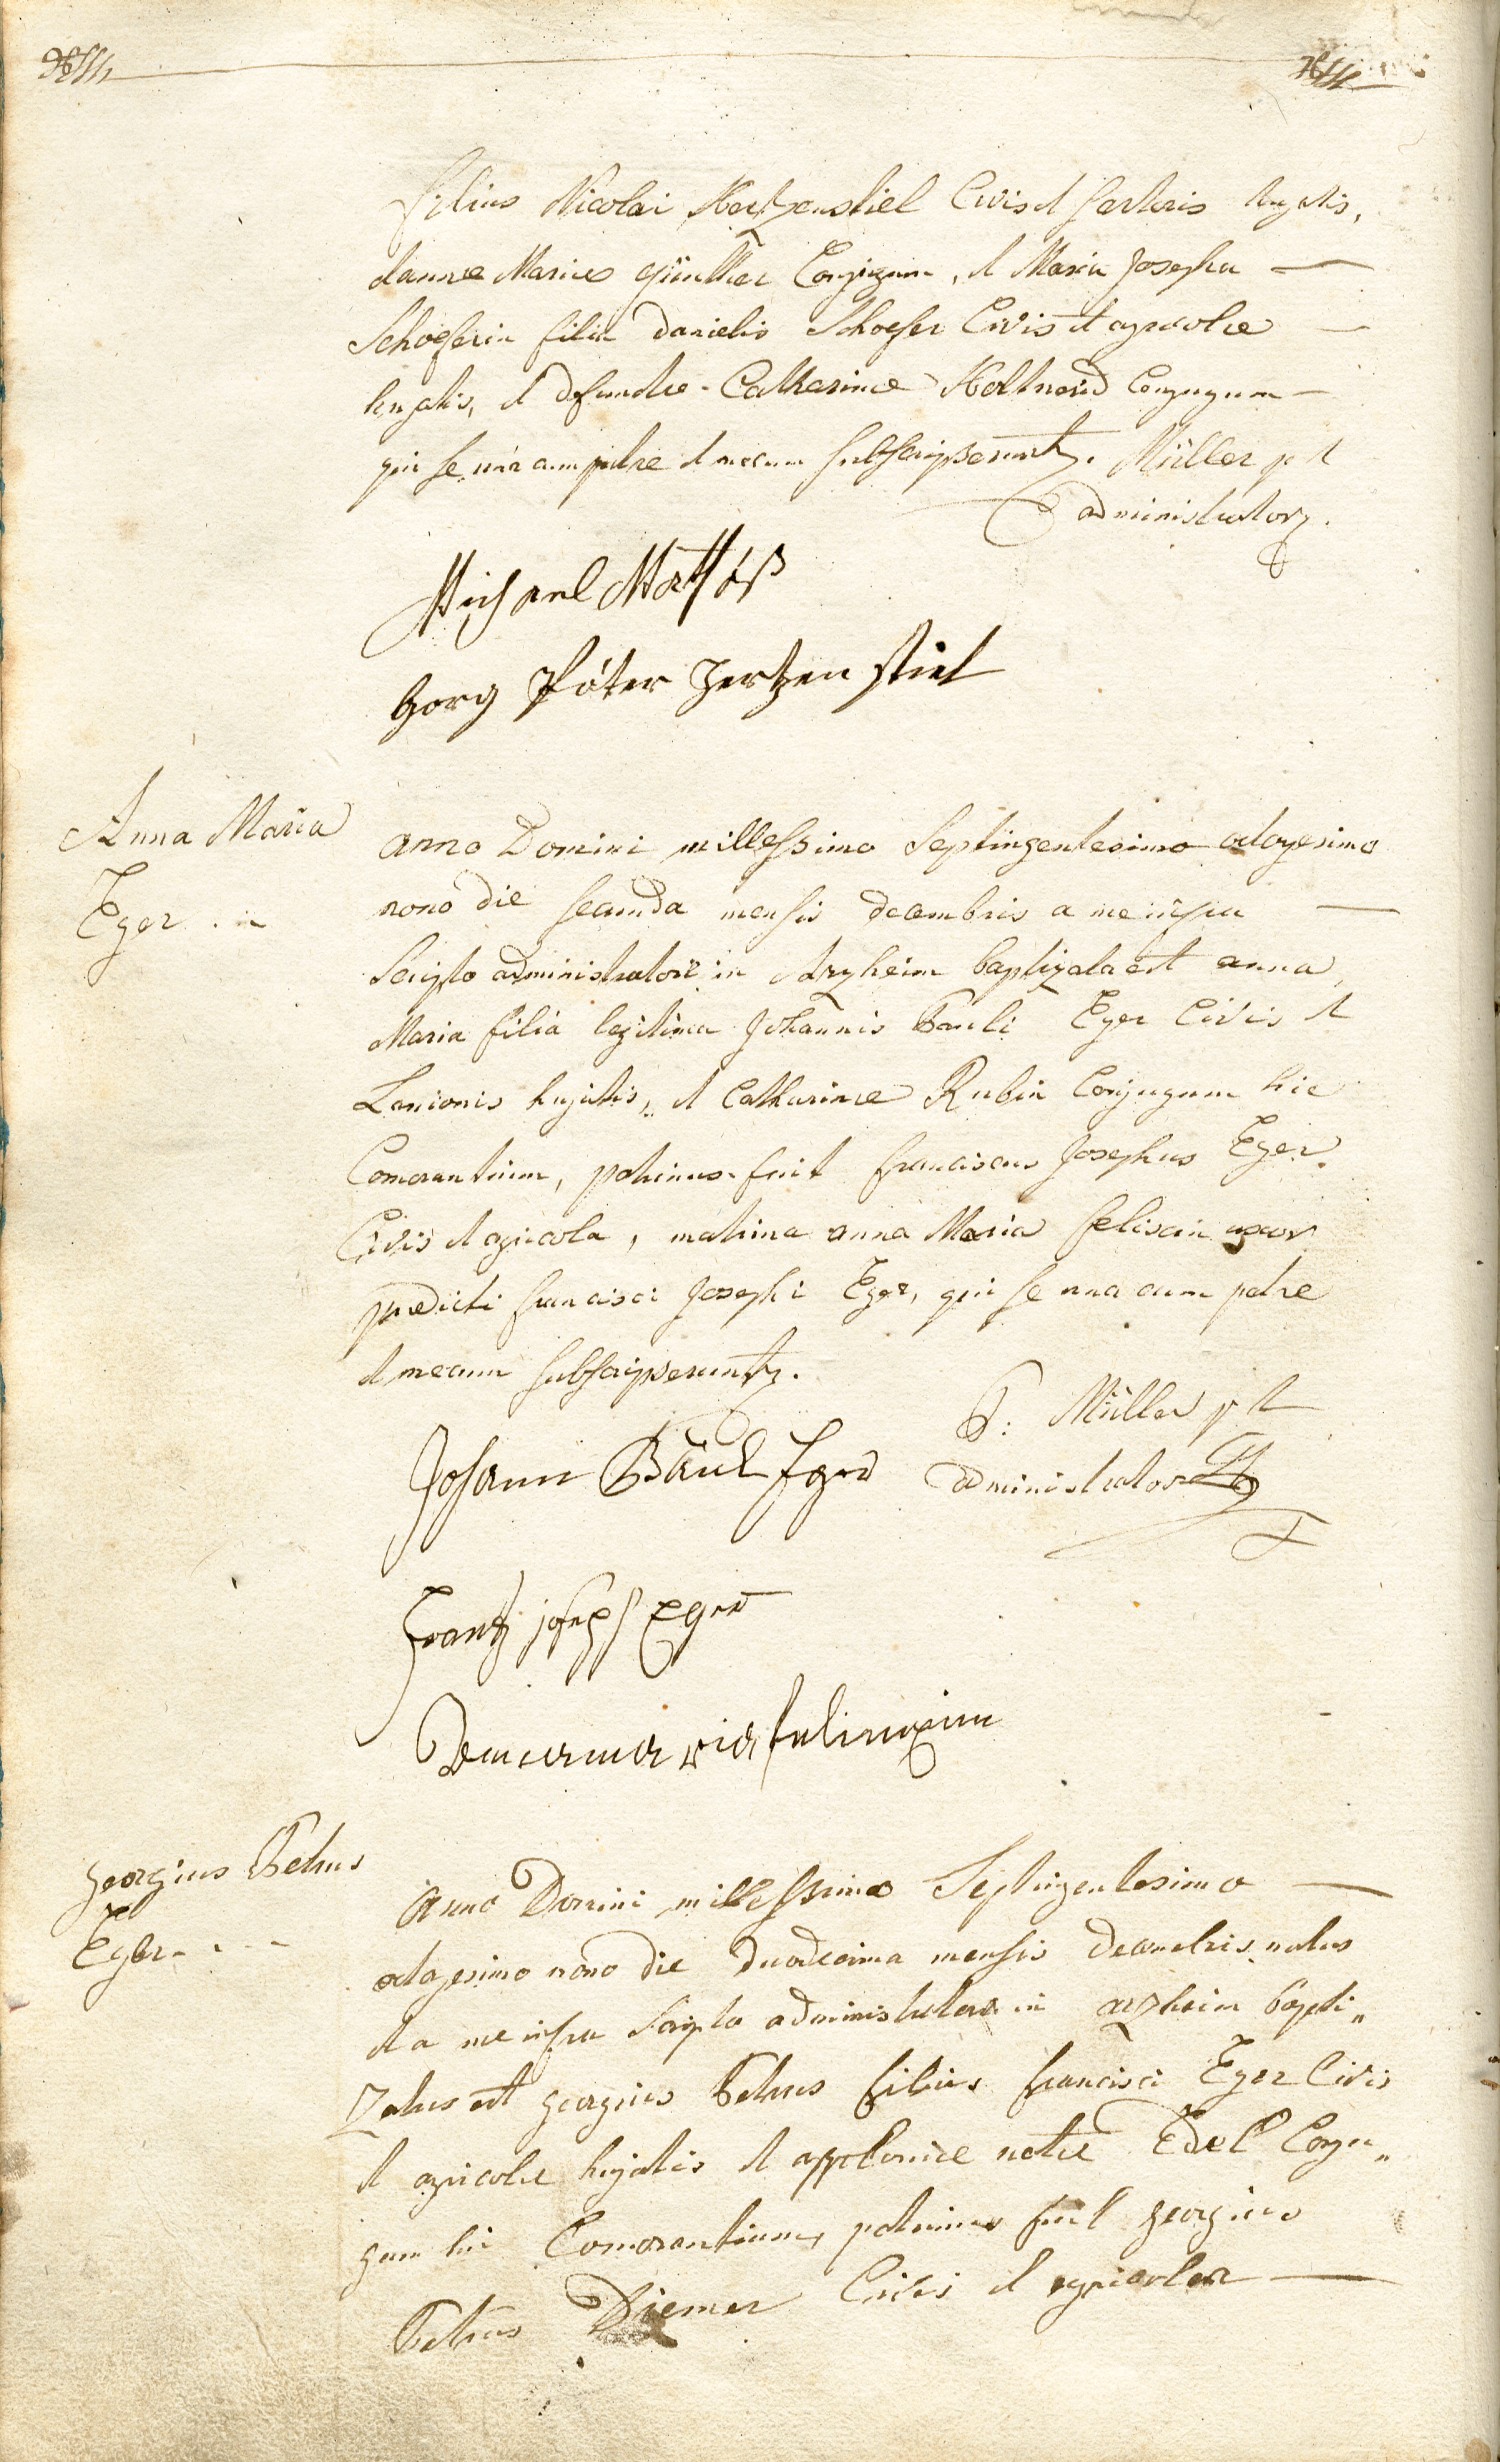 filius Nicolai Hertzenstiel Civis et sartoris hujatis,
et annæ Mariæ Günther Conjugum, et Maria Josepha
Schoeferin filia Danielis Schoefer Civis et agricolæ
hujatis, et defunctæ Catharinæ Conjugum
qui se una cum patre et mecum subscripserunt. Müller p t
administrator.
Michael
Gorg Peter Hertzenstiel
Anna Maria
Eger
anno Domini millessimo Septingentesimo octogesimo
nono die secunda mensis decembris a me infra
Scripto administratore in Arzheim baptizata est anna
Maria filia legitima Johannis Pauli Eger Civis et
Lanionis hujatis, et Catharinæ Rubin Conjugum hic
Comorantium, patrinus fuit franciscus Josephus Eger
Civis et agricola, matrina anna Maria felixin uxor
prædicti francisci Josephi Eger, qui se una cum patre
et mecum subscripserunt.
P: Müller p t
administrator
Johann Paul Eger
Frantz joseph Eger
maria felixin
georgius Petrus
Eger
Anno Domini millessimo Septingentesimo
octogesimo nono die duodecima mensis decembris natus
et a me infra Scripto administratore in arzheim bapti„
zatus est georgius Petrus filius francisci Eger Civis
et agricolæ hujatis et apploniæ natæ Edel Conju„
gum hic Comorantium, patrinus fuit georgius
Petrus Diemer Civis et agricola